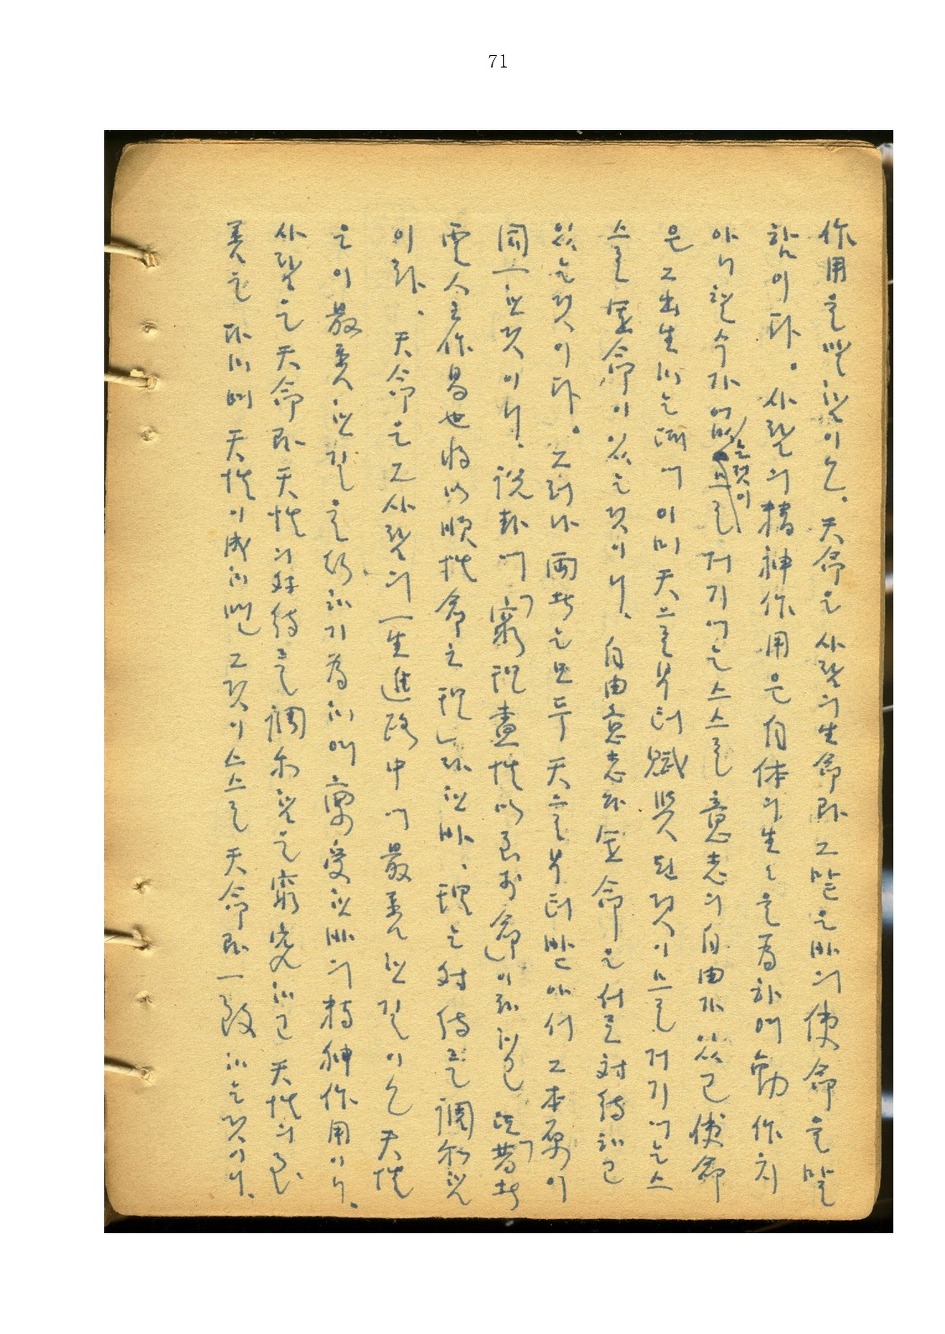 71
作用을 말함이오. 天命은 사람의 生命과 그 맡은 바의 使命을 말
함이다. 사람의 精神作用은 自体의 生을 為하여 動作치
아니할 수가 없는것이 거기에는 스스로 意志의 自由가 있고 使命
은 그 出生하는 때에 이미 天으로부터 賦與된 것이므로 거기에는 스
스로 命이 있는 것이니, 自由意志와 命은 서로 對待하고
있는 것이다. 그러나 両者는 모두 天으로부터 받아서 그 本原이
同一한 것이니, 說卦에「窮理盡性以至於命」이라 하고「昔者
聖人之作易也 將以順性命之理」라 한 바, 理는 對待를 調和함
이라. 天命은 그 사람의 一生進路中에 最善한 길이오 天性
은 이 最善한 길을 行하기 為하여 稟受한 바의 精神作用이니,
사람은 天命과 天性의 對待를 調和하고 窮究하고 天性의 至
善을 다하면 天性이 成하며 그것이 스스로 天命과 一致하는 것이니,